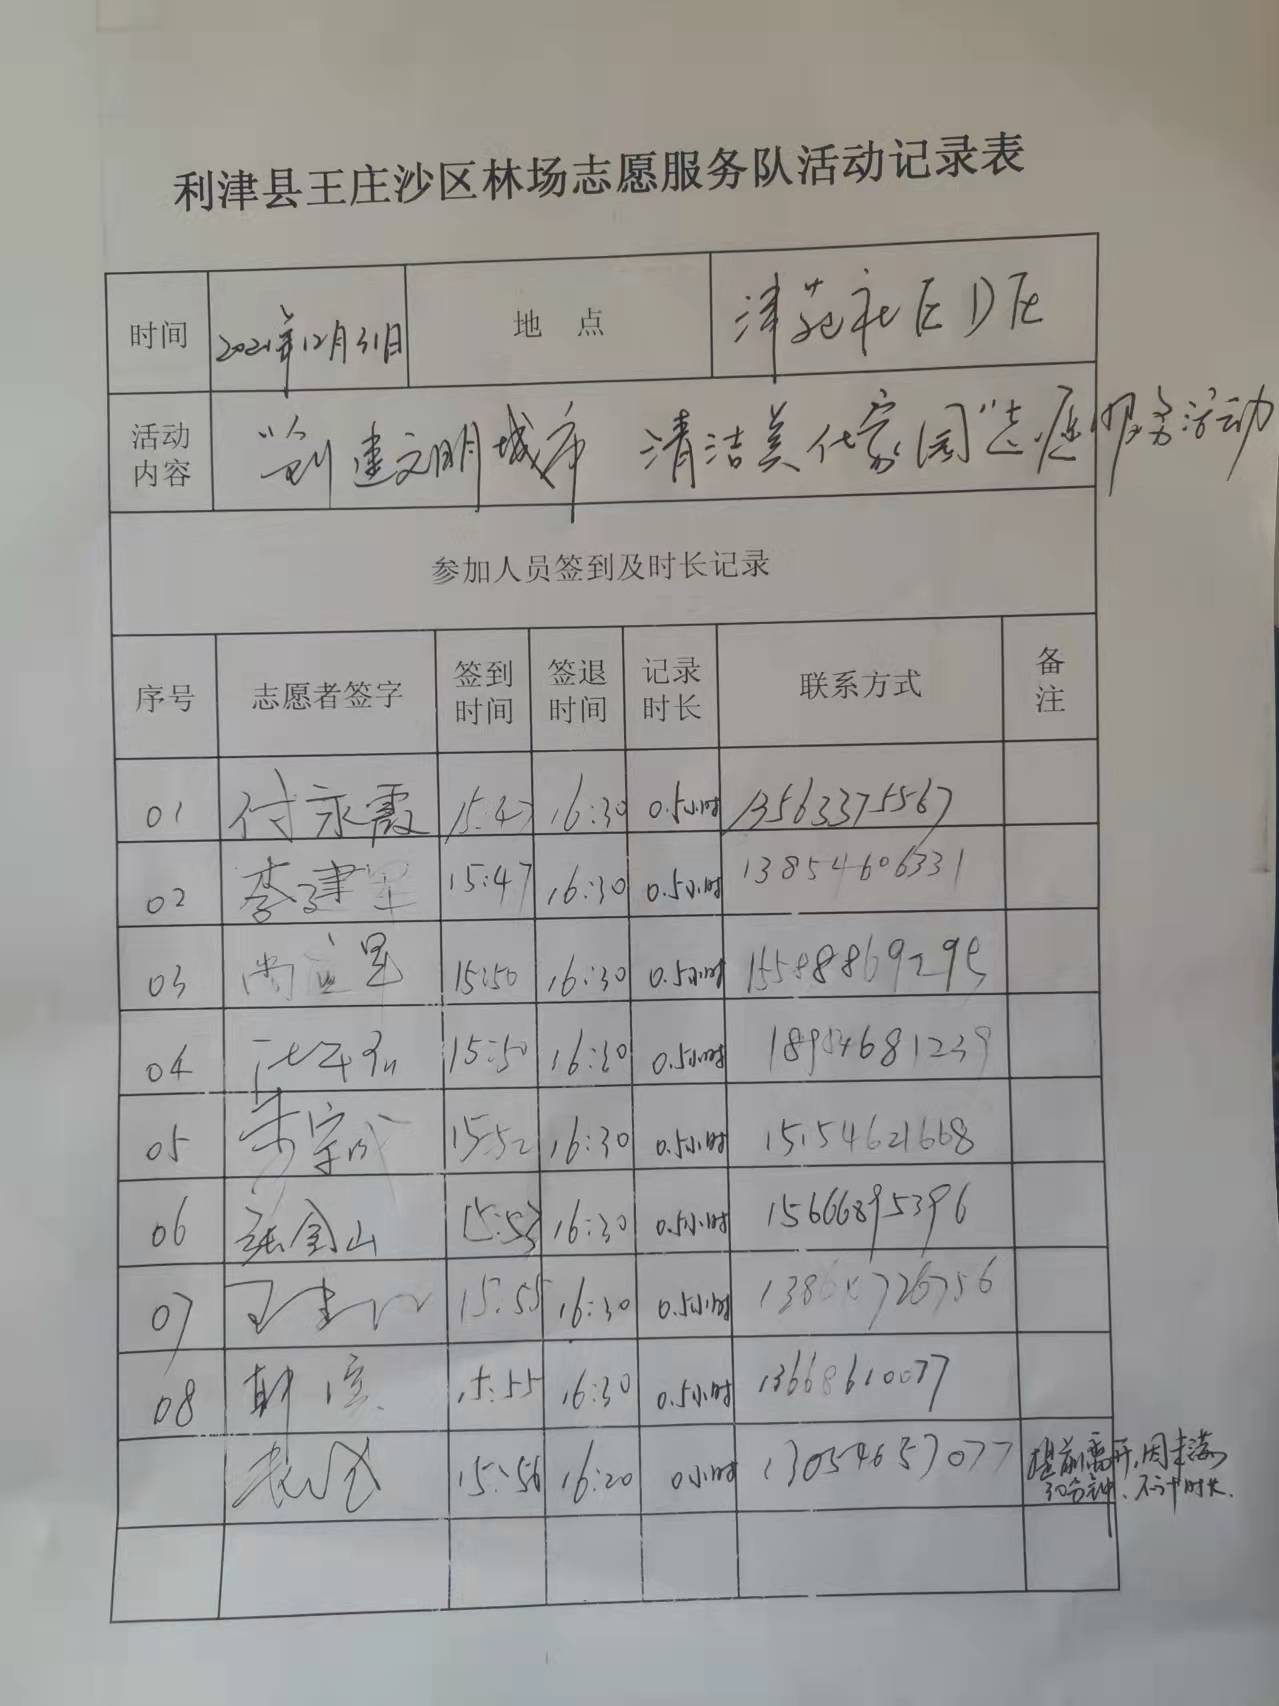 利津县王庄沙区林场志愿服务队活动记录表
时间 2021年12月31日 地点 津苑社区D区
活动内容 “创建文明城市 清洁美化家园”志愿服务活动
参加人员签到及时长记录
序号 志愿者签字 签到时间 签退时间 记录时长 联系方式 备注
01 付永霞 15:47 16:30 0.5小时 13563375567
02 李建军 15:47 16:30 0.5小时 13854606331
03 15:50 16:30 0.5小时 15588869295
04 15:50 16:30 0.5小时 18954681239
05 15:52 16:30 0.5小时 15154621668
06 张金山 15:53 16:30 0.5小时 15666895396
07 15:55 16:30 0.5小时
08 15:55 16:30 0.5小时 13668610077
15:56 16:20 0小时 13054657077 提前离开,因未满
30分钟、不计时长.